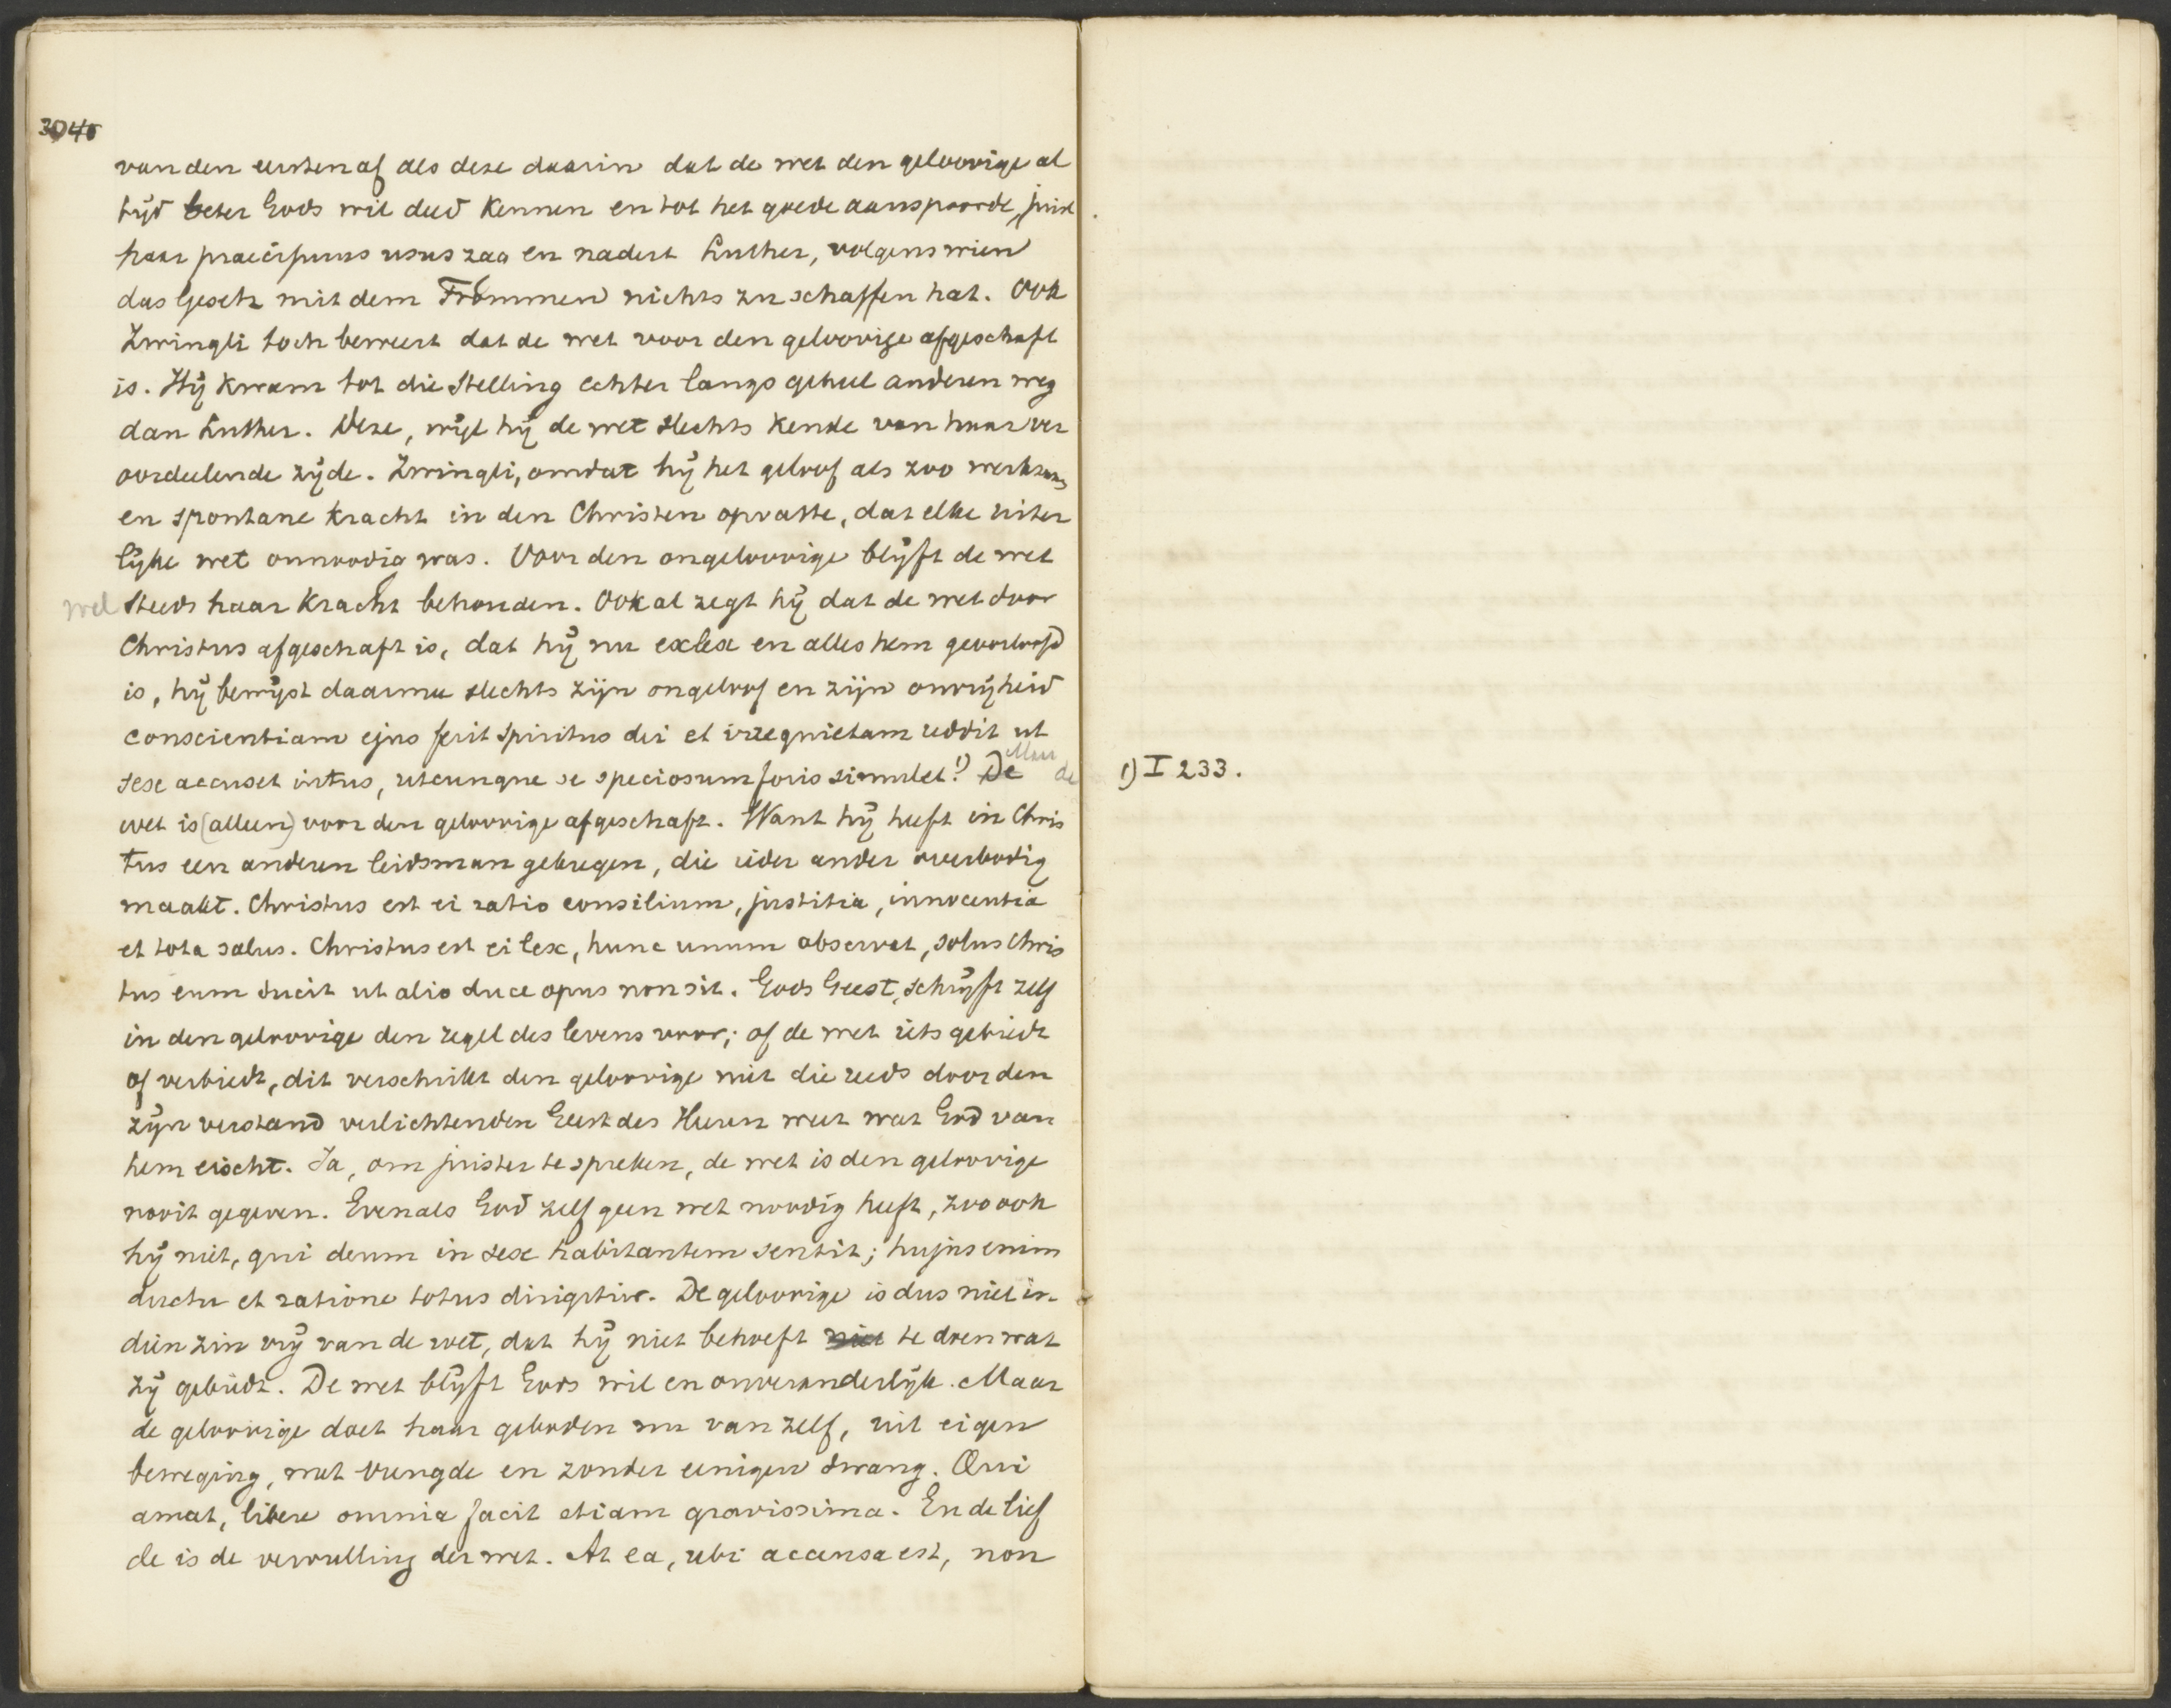 van den eersten af als deze daarin dat de wet den geloovige al
tijd beter Gods wil deed kennen en tot het goede aanspoorde, juist
haar praecipuus usus zag en nadert Luther, volgens wien
das Gesetz mit dem Frommen nichts zu schaffen hat. Ook
Zwingli toch beweert dat de wet voor den geloovige afgeschaft
is. Hij kwam tot die stelling echter langs geheel anderen weg
dan Luther. Deze, wijl hij de wet slechts kende van haar ver
oordeelende zijde. Zwingli, omdat hij het geloof als zoo werkzame
en spontane kracht in den Christen opvatte, dat elke uiter
lijke wet onnoodig was. Voor den ongeloovige blijft de wet
wel steeds haar kracht behouden. Ook al zegt hij dat de wet door
Christus afgeschaft is, dat hij nu exlex en alles hem geoorloofd
is, hij bewijst daarmee slechts zijn ongeloof en zijn onvrijheid
conscientiam ejus ferit spiritus dei et irrequietam reddit ut
sese accuset intus, utcunque se speciosum foris simulet!1) De Maar de
wet is (alleen) voor den geloovige afgeschaft. Want hij heeft in Chris
tus een anderen leidsman gekregen, die ieder ander overbodig
maakt. Christus est ei ratio consilium, justitia, innocentia
et tota salus. Christus est ei lex, hunc unum observat, solus Chris
tus eum ducit ut alio duce opus non sit. Gods Geest, schrijft zelf
in den geloovige den regel des levens voor; of de wet iets gebiedt
of verbiedt, dit verschrikt den geloovige niet die reeds door den
zijn verstand verlichtenden Geest des Heeren weet wat God van
hem eischt. Ja, om juister te spreken, de wet is den geloovige
nooit gegeven. Evenals God zelf geen wet noodig heeft, zoo ook
hij niet, qui deum in sese habitantem sentit; hujus enim
ductu et ratione totus dirigitur. De geloovige is dus niet in
dien zin vrij van de wet, dat hij niet behoeft niet te doen wat
zij gebiedt. De wet blijft Gods wil en onveranderlijk. Maar
de geloovige doet haar geboden nu van zelf, uit eigen
beweging, met vreugde en zonder eenigen dwang. Qui
amat, libere omnia facit etiam gravissima. En de lief
de is de vervulling der wet. At ea, ubi accensa est, non
1) I 233.